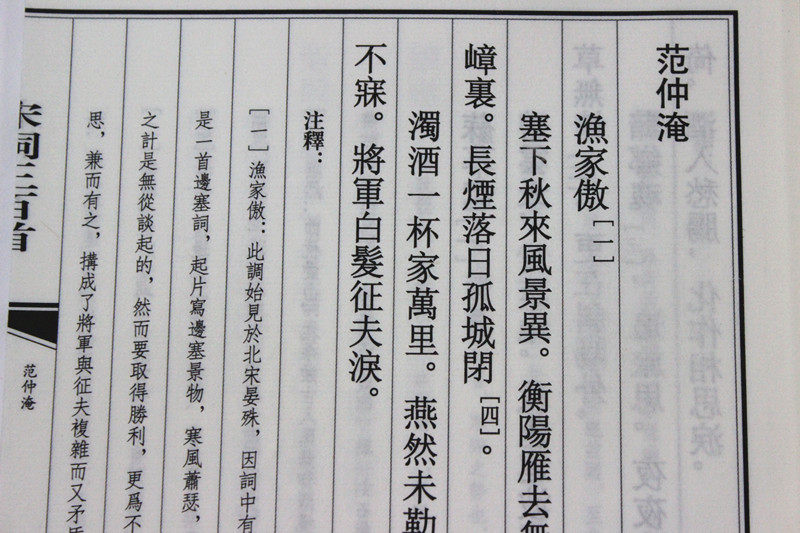 范仲淹
漁家傲[一]
塞下秋來風景異。衡陽雁去無
嶂裏。長煙落日孤城閉[四]。
濁酒一杯家萬里。燕然未勒
不寐。將軍白髮征夫淚。
注釋：
[一]漁家傲：此調始見於北宋晏殊，因詞中有
是一首邊塞詞，起片寫邊塞景物，寒風蕭瑟，
之計是無從談起的，然而要取得勝利，更爲不
思，兼而有之，構成了將軍與征夫複雜而又矛盾
宋詞三百首
范仲淹